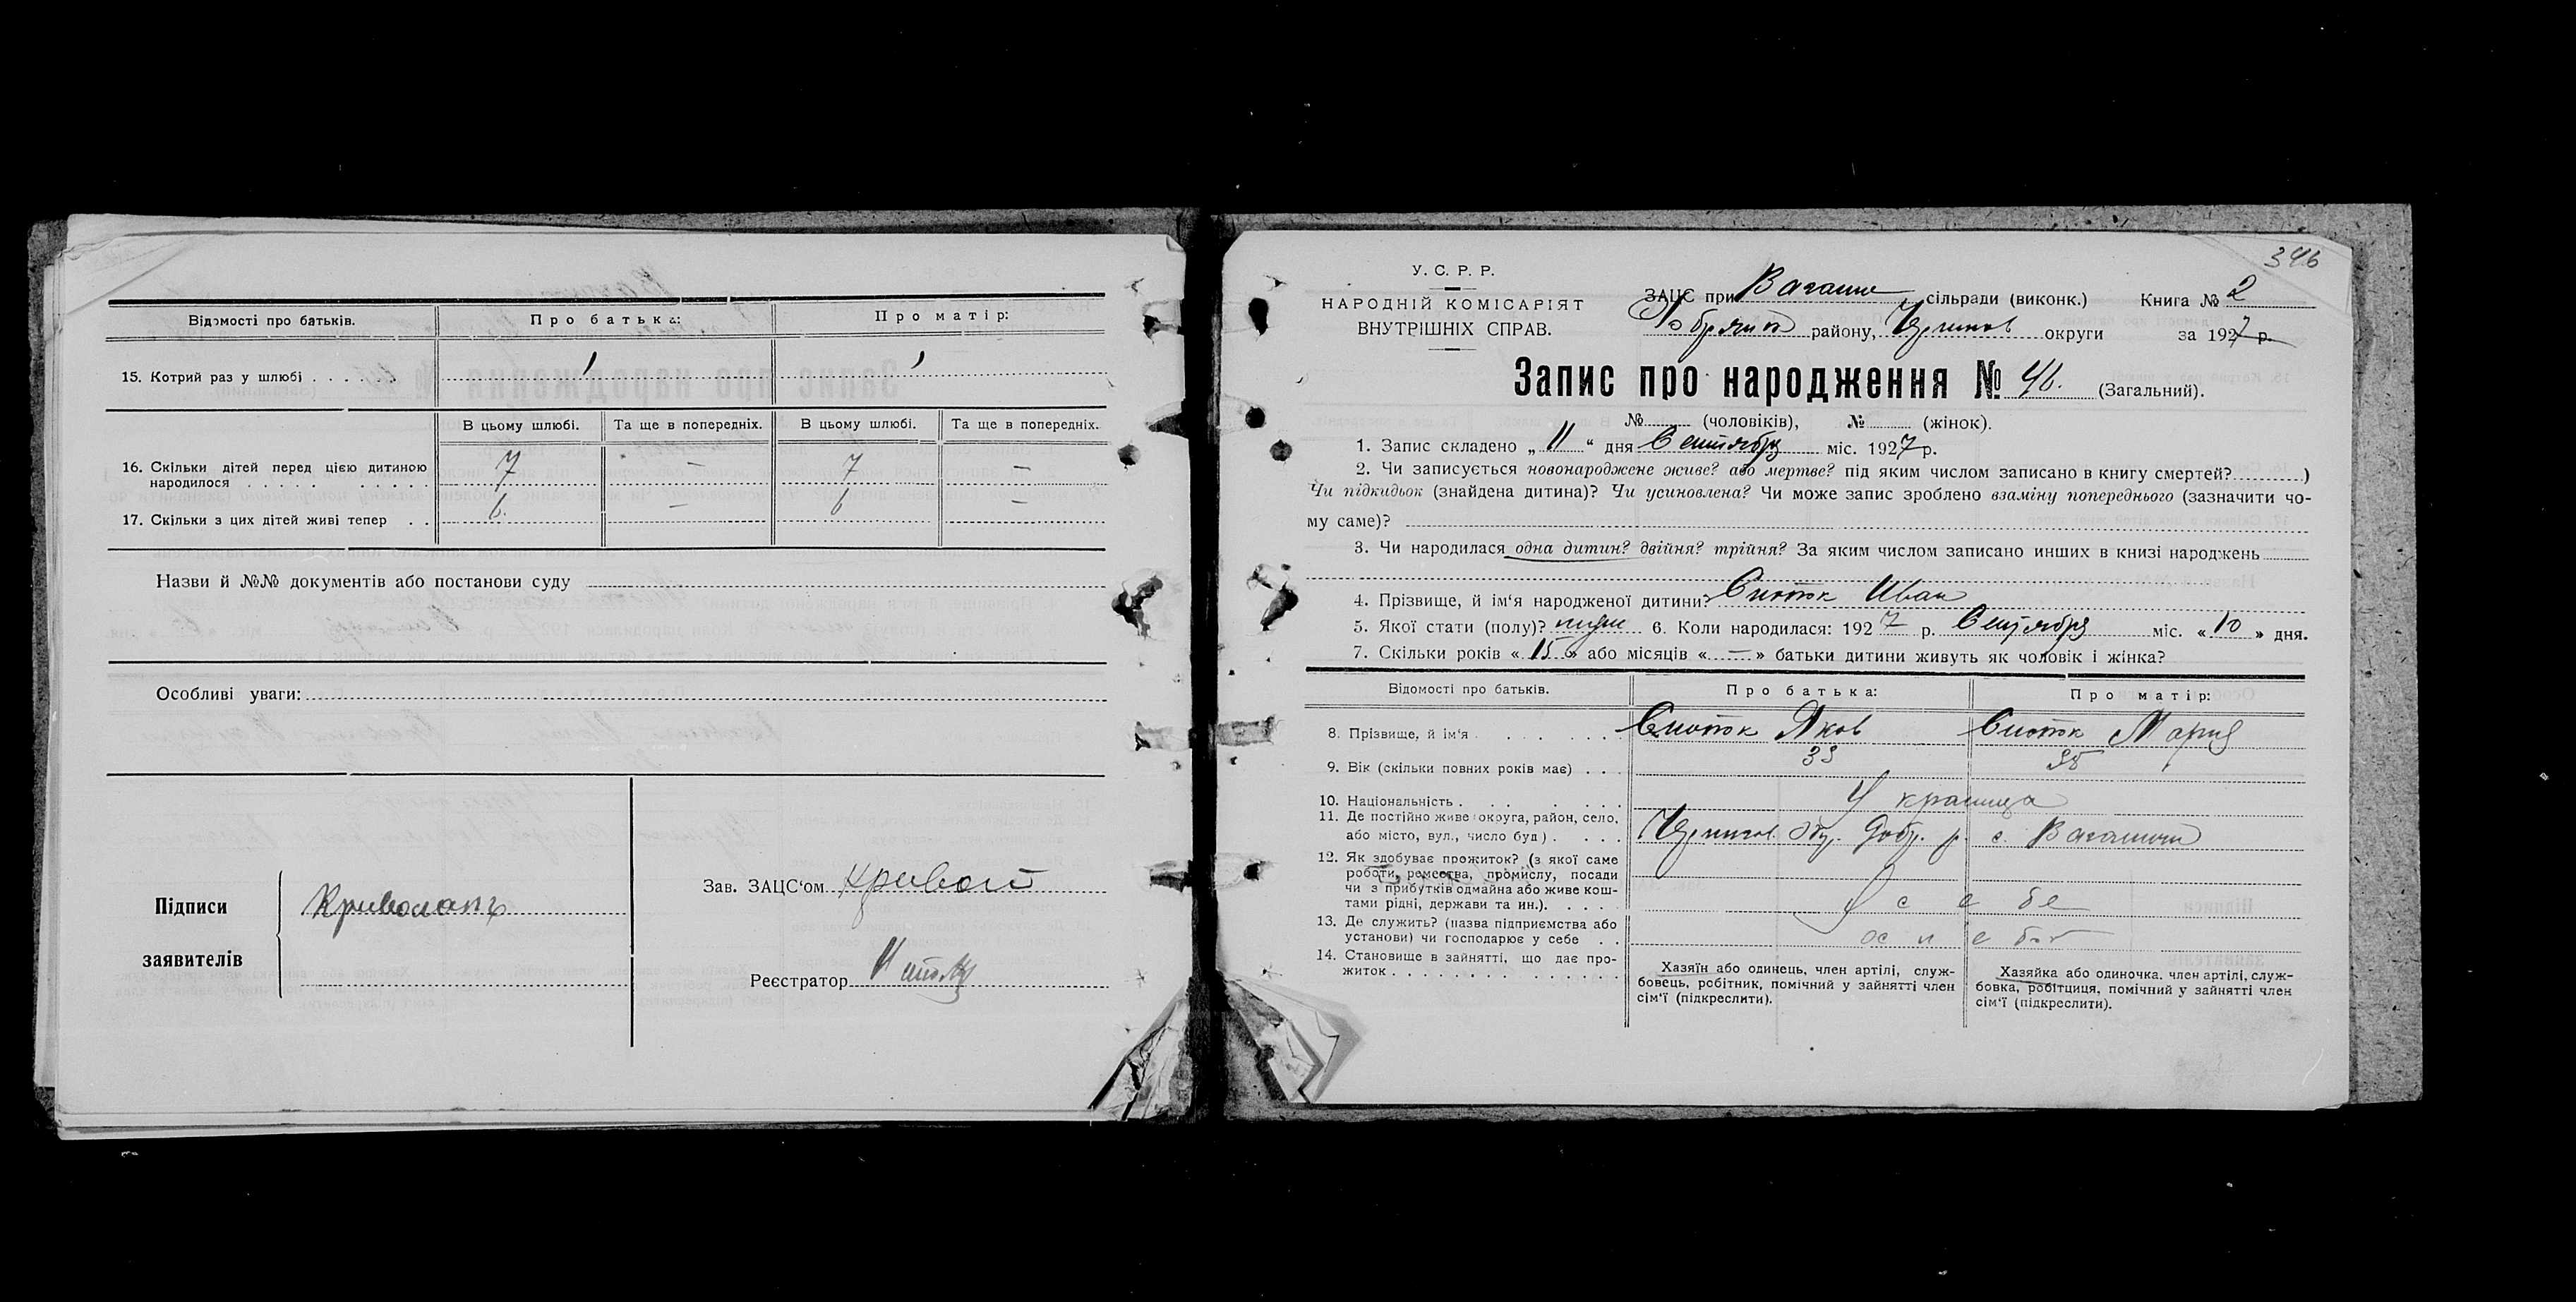 Відомості про батьків.
Про батька:
Про матір:
15. Котрий раз у шлюбі
1
1
В цьому шлюбі.
Та ще в попередніх.
В цьому шлюбі.
Та ще в попередніх.
16. Скільки дітей перед цією дитиною
народилося
7 — 7 —
17. Скільки з цих дітей живі тепер
6. — 6 —
Назви й №№ документів або постанови суду
Особливі уваги:
Підписи
заявителів
Зав. ЗАЦС‘ом Кривой
Реєстратор
346
У. С. Р. Р.
НАРОДНІЙ КОМІСАРІЯТ
ВНУТРІШНІХ СПРАВ.
ЗАЦС при сільради (виконк.)
Книга № 2
району, округи
за 1927 р.
Запис про народження № 46. (Загальний).
№ (чоловіків), № (жінок).
1. Запис складено „11“ дня Сентября міс. 1927 р.
2. Чи записується новонароджене живе? або мертве? під яким числом записано в книгу смертей? )
Чи підкидьок (знайдена дитина)? Чи усиновлена? Чи може запис зроблено взаміну попереднього (зазначити чо-
му саме)?
3. Чи народилася одна дитин? двійня? трійня? За яким числом записано инших в книзі народжень
4. Прізвище, й ім‘я народженої дитини? Иван
5. Якої стати (полу)? 6. Коли народилася: 1927 р. Сентября міс. «10» дня.
7. Скільки років «15» або місяців «—» батьки дитини живуть як чоловік і жінка?
Відомості про батьків.
Про батька:
Про матір:
8. Прізвище, й ім‘я
Яков
Мария
9. Вік (скільки повних років має)
33
35
10. Національність
Украинца
11. Де постійно живе (округа, район, село,
або місто, вул., число буд)
Чернигов. Окр. Добр. р. с.
12. Як здобуває прожиток? (з якої саме
роботи, ремества, промислу, посади
чи з прибутків одмайна або живе кош-
тами рідні, держави та ин.).
У себе
13. Де служить? (назва підприємства або
установи) чи господарює у себе
14. Становище в зайнятті, що дає про-
житок
Хазяїн або одинець, член артілі, служ-
бовець, робітник, помічний у зайнятті член
сім‘ї (підкреслити).
Хазяйка або одиночка, член артілі, служ-
бовка, робітциця, помічний у зайнятті член
сім‘ї (підкреслити).